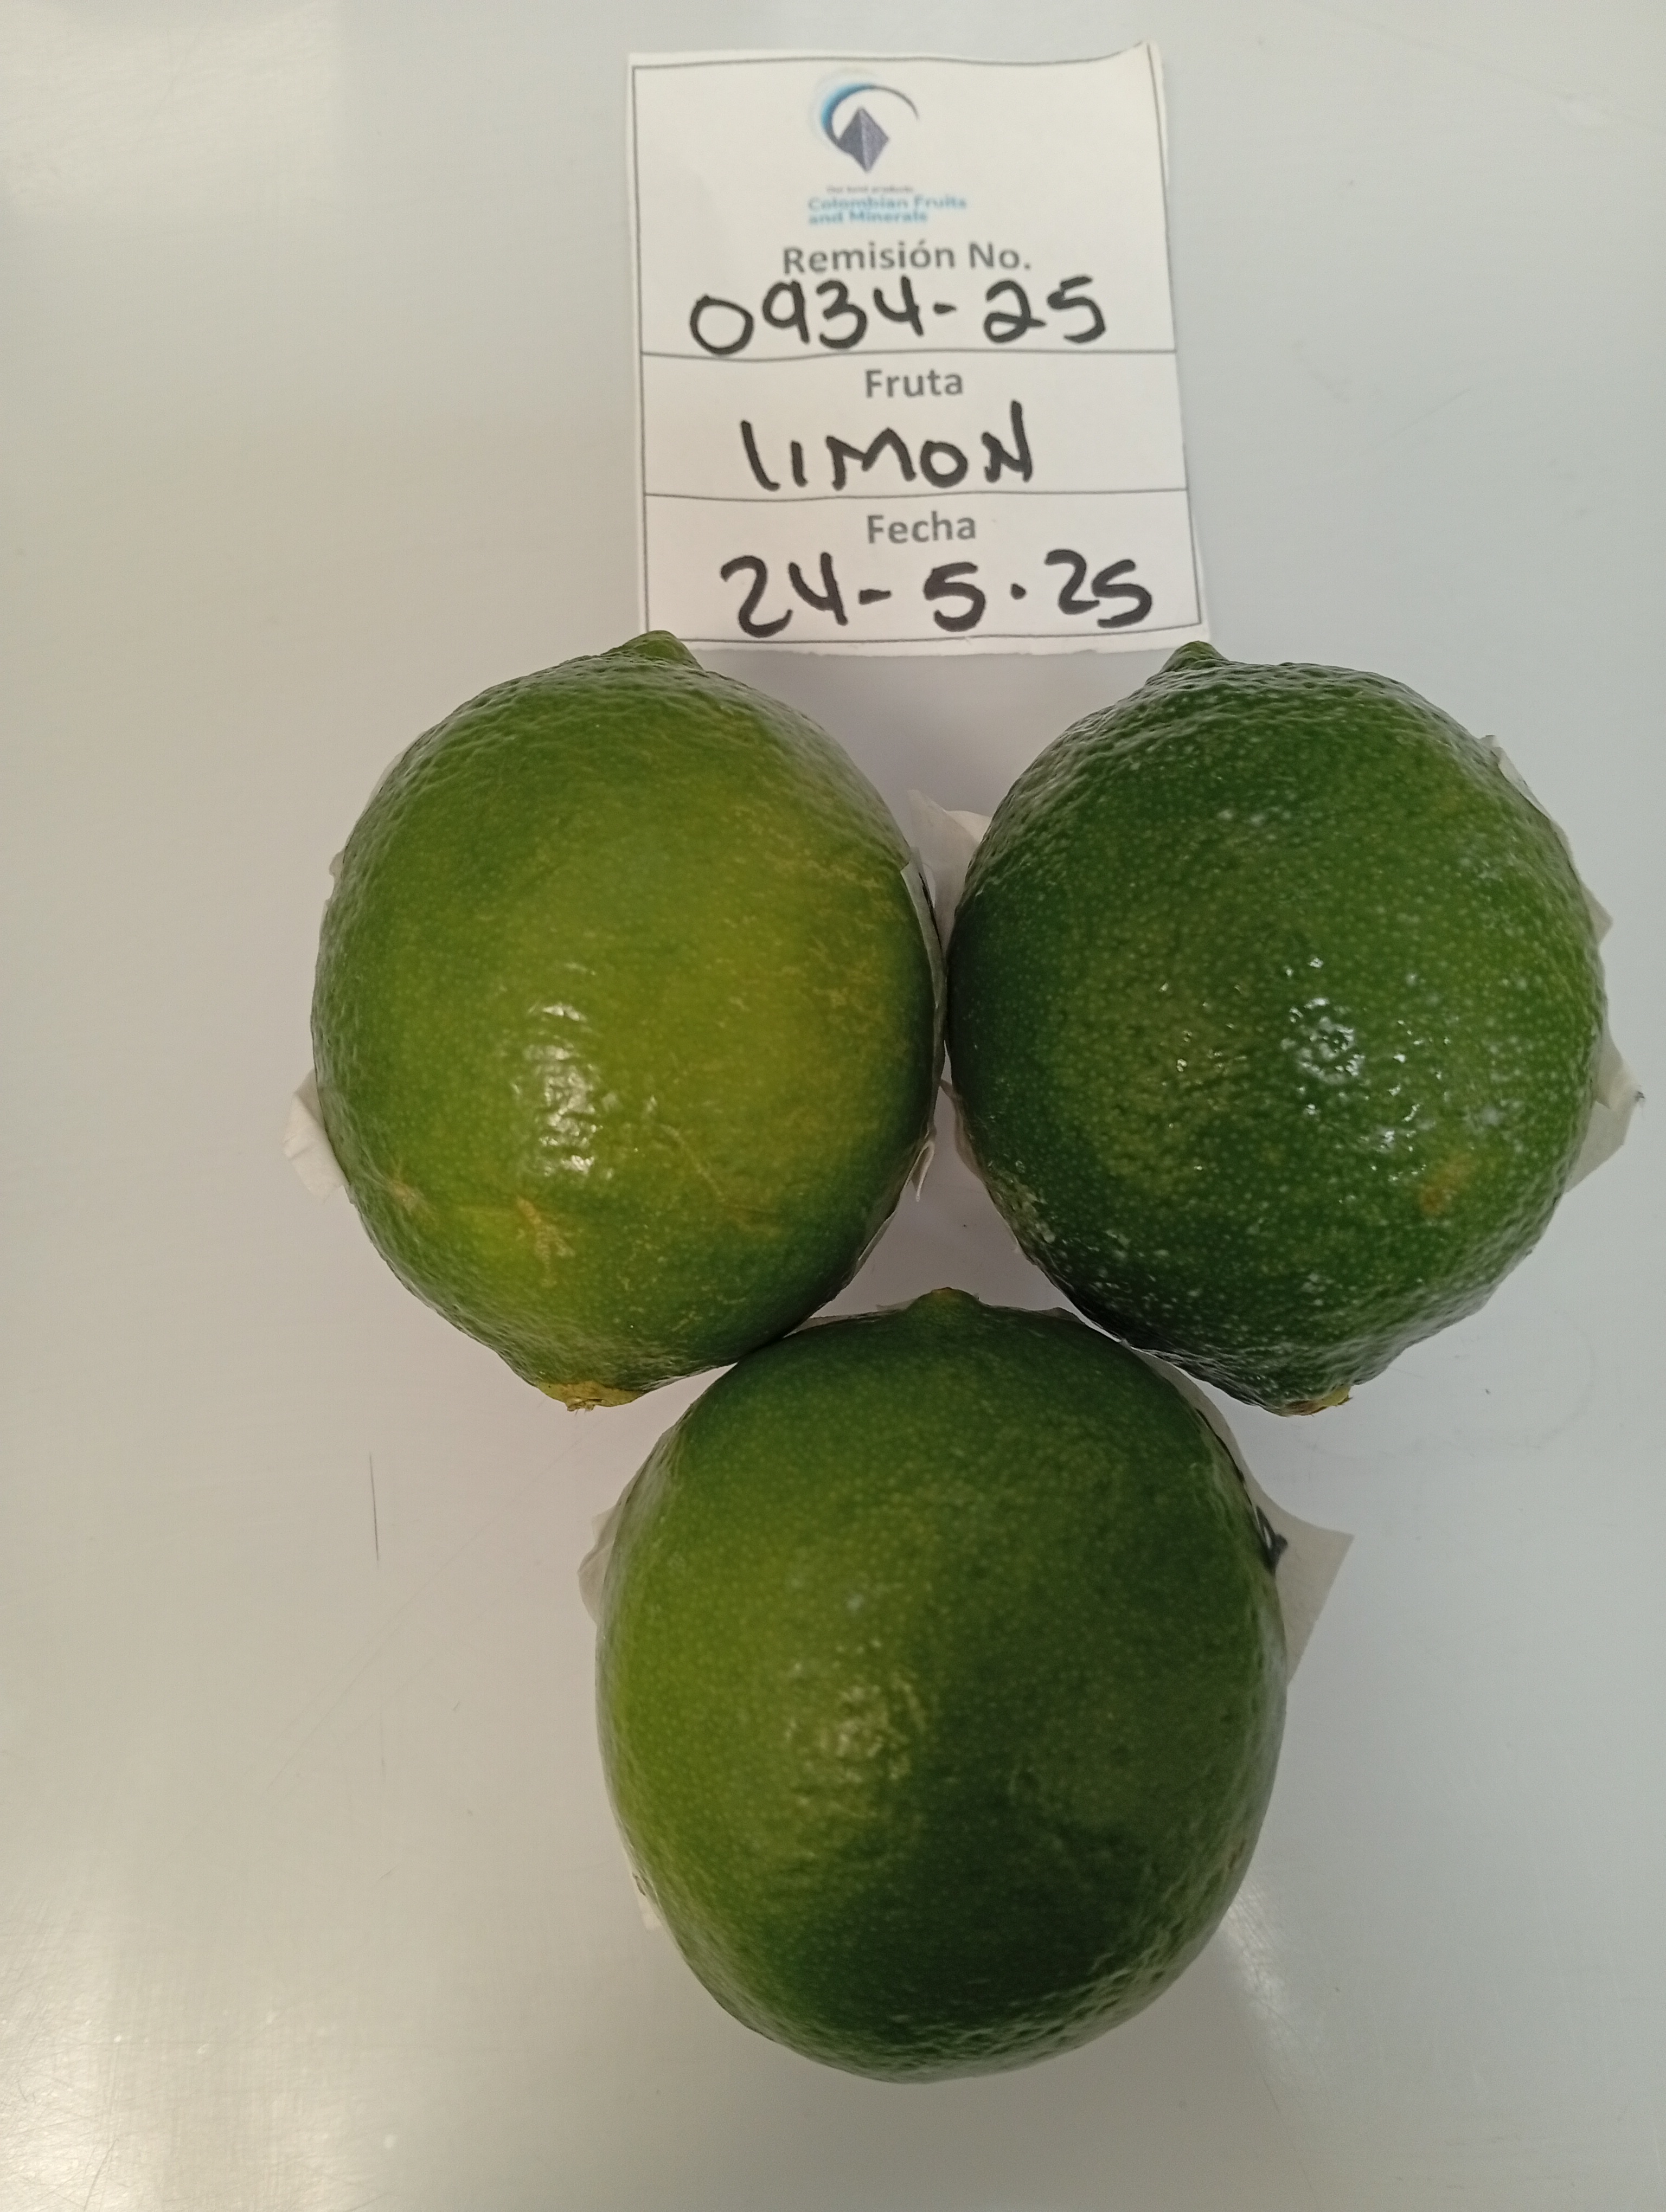 Our best products
Colombian Fruits
and Minerals
Remisión No.
0934-25
Fruta
LIMON
Fecha
24-5.25